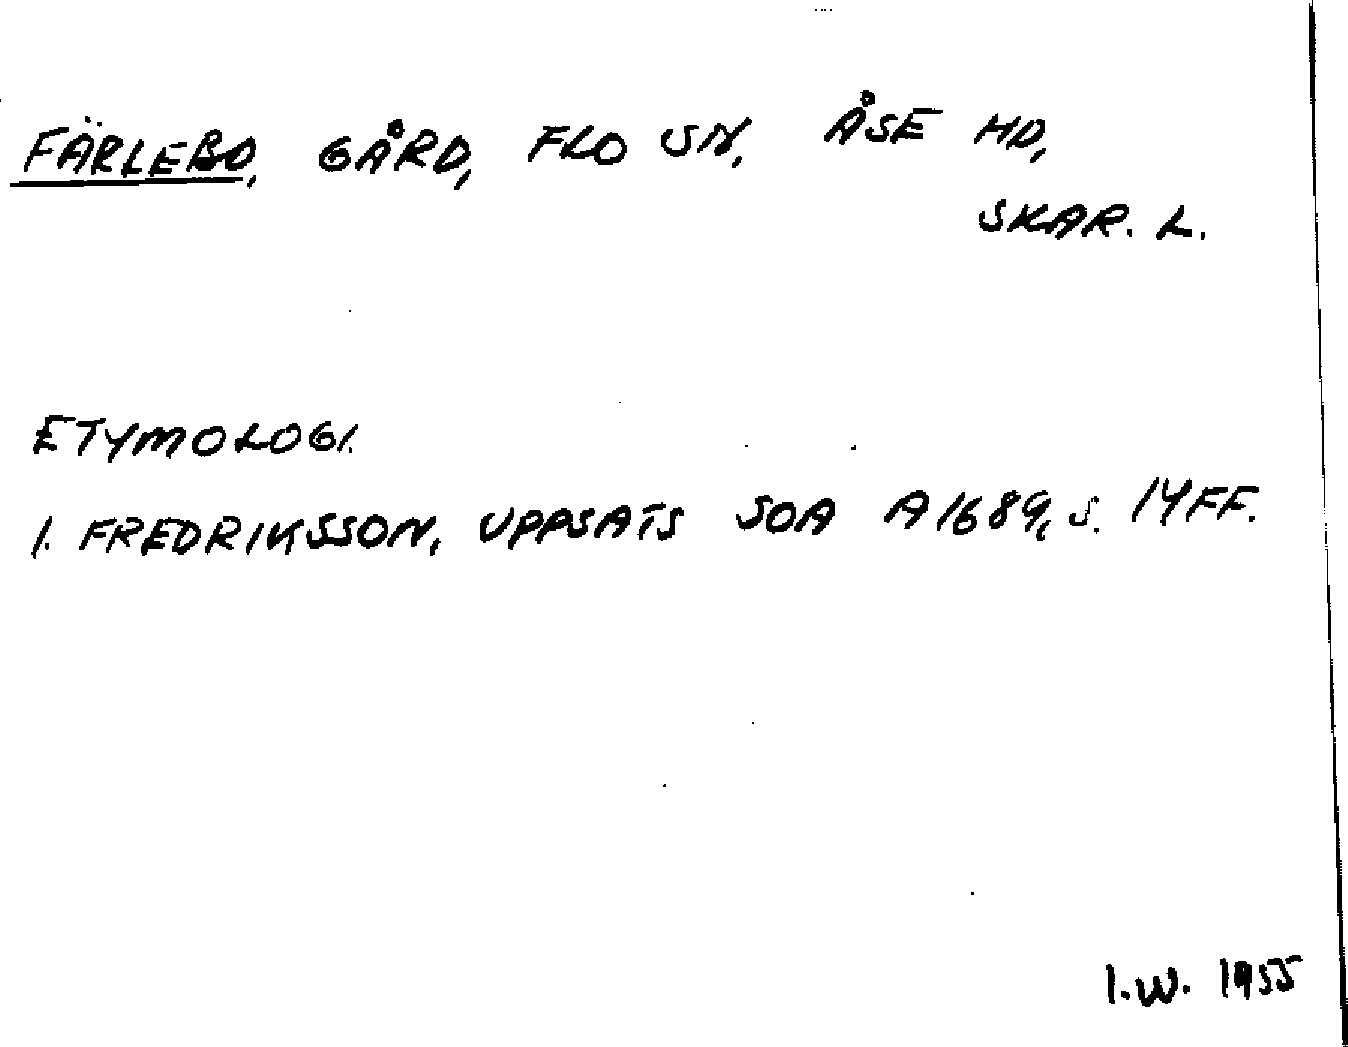 FÄRLEBO, GÅRD, FLO SN, ÅSE HD,
SKAR. L.
ETYMOLOGI.
I. FREDRIKSSON, UPPSATS SOA A1689, S. 14FF.
I.W. 1955